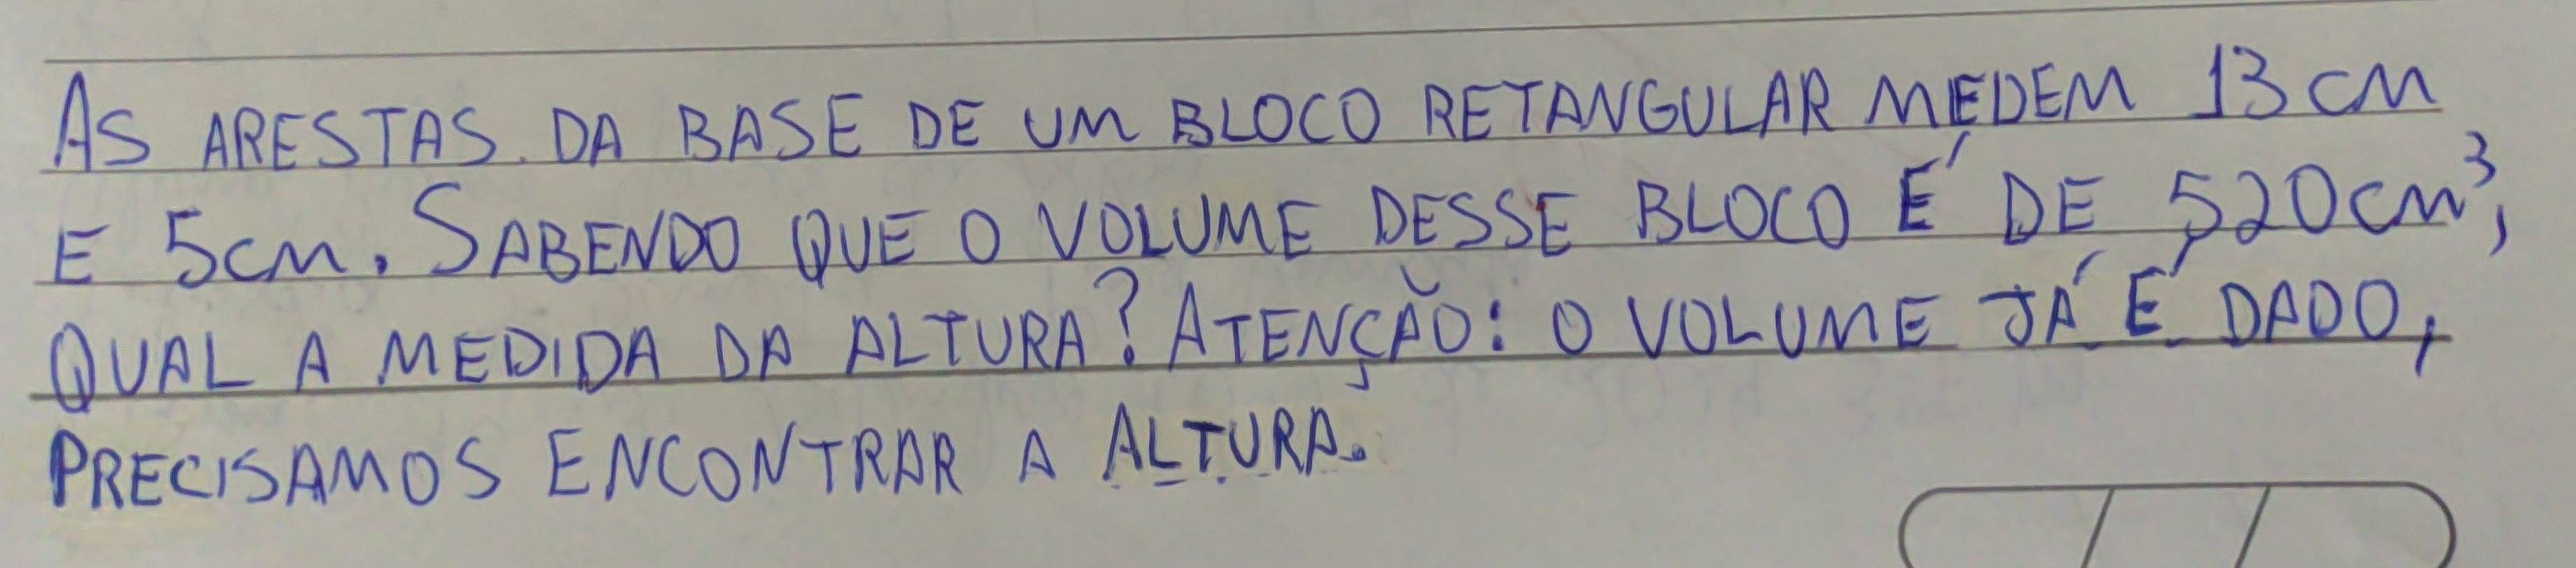 AS ARESTAS DA BASE DE UM BLOCO RETANGULAR MEDEM 13 CM
E 5CM. SABENDO QUE O VOLUME DESSE BLOCO É DE 520CM³,
QUAL A MEDIDA DA ALTURA? ATENÇÃO: O VOLUME JÁ É DADO,
PRECISAMOS ENCONTRAR A ALTURA.